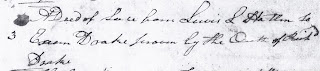 A Deed of Sale from Lewis L Hatten to
3 Exum Drake proven by the Oath of Rich'd
Drake